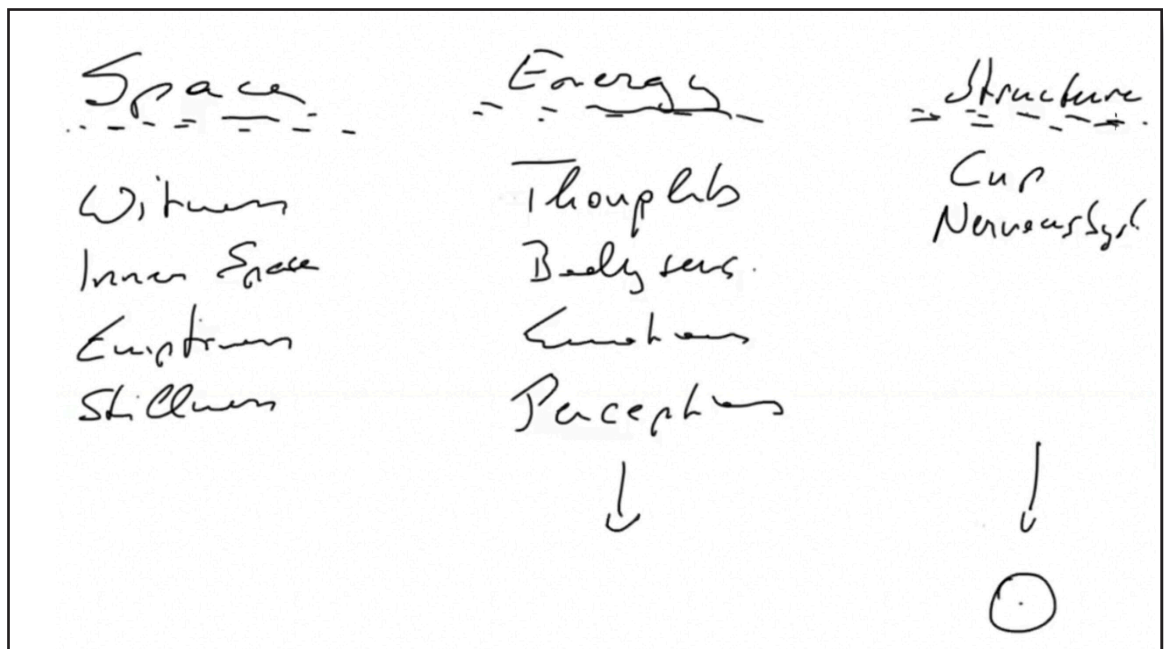 Space
Witness
Inner Space
Emptiness
Stillness
Energy
Thoughts
Body sens.
Emotions
Perceptions
Structure
Cup
Nervous Syst